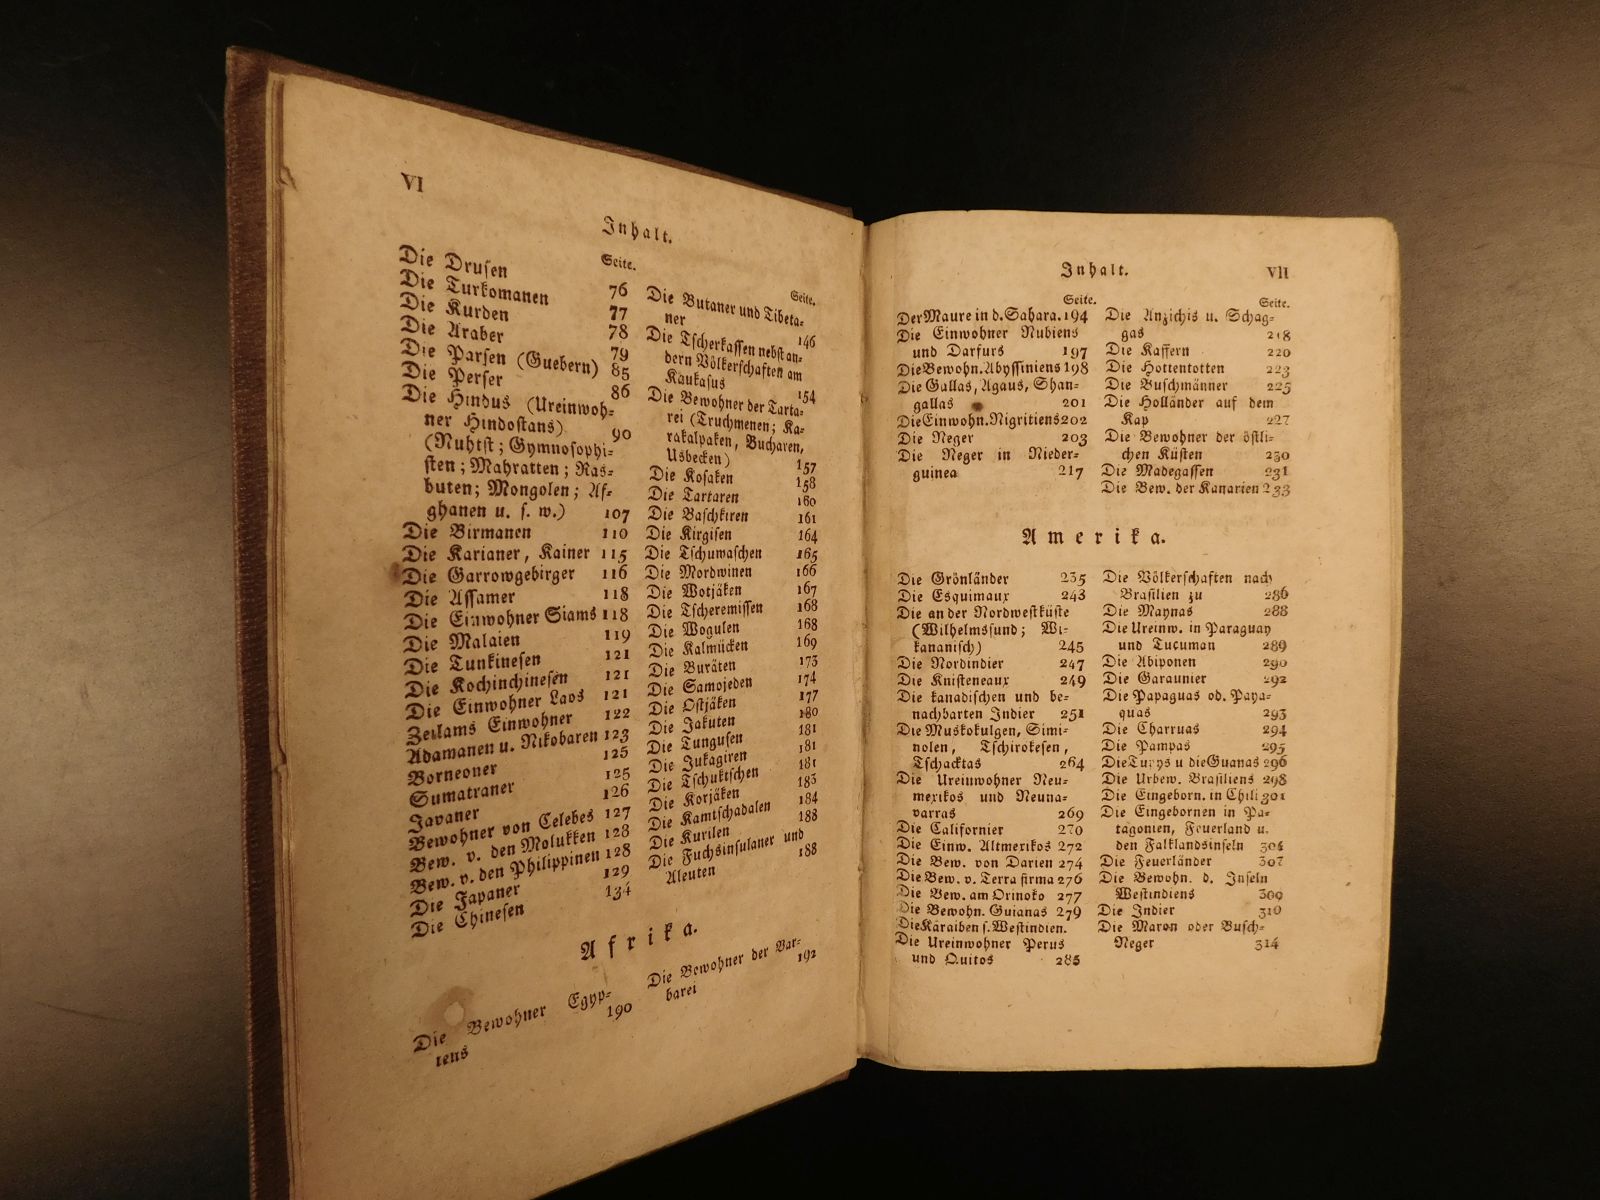 VI
Inhalt.
Seite.
Die Drusen 76
Die Turkomanen 77
Die Kurden 78
Die Araber 79
Die Parsen (Guebern) 85
Die Perser 86
Die Hindus (Ureinwoh-
ner Hindostans) 90
(Nuhtst; Gymnosophi-
sten; Mahratten; Ras-
buten; Mongolen; Af-
ghanen u. s. w.) 107
Die Birmanen 110
Die Karianer, Kainer 115
Die Garrowgebirger 116
Die Assamer 118
Die Einwohner Siams 118
Die Malaien 119
Die Tunkinesen 121
Die Kochinchinesen 121
Die Einwohner Laos 121
Zeilams Einwohner 122
Adamanen u. Nikobaren 123
Borneoner 125
Sumatraner 125
Javaner 126
Bewohner von Celebes 127
Bew. v. den Molukken 128
Bew. v. den Philippinen 128
Die Japaner 129
Die Chinesen 134
Seite.
Die Butaner und Tibeta-
ner 146
Die Tscherkassen nebst an-
dern Völkerschaften am
Kaukasus 154
Die Bewohner der Tarta-
rei (Truchmenen; Ka-
rakalpaken, Bucharen,
Usbecken) 157
Die Kosaken 158
Die Tartaren 160
Die Baschkiren 161
Die Kirgisen 164
Die Tschuwaschen 165
Die Mordwinen 166
Die Wotjäken 167
Die Tscheremissen 168
Die Wogulen 168
Die Kalmücken 169
Die Buräten 173
Die Samojeden 174
Die Ostjäken 177
Die Jakuten 180
Die Tungusen 181
Die Jukagiren 181
Die Tschuktschen 181
Die Korjäken 183
Die Kamtschadalen 184
Die Kurilen 188
Die Fuchsinsulaner und
Aleuten 188
Afrika.
Die Bewohner Egyp-
tens 190
Die Bewohner der Bar-
barei 192
Inhalt. VII
Seite.
Der Maure in d. Sahara. 194
Die Einwohner Nubiens
und Darfurs 197
Die Bewohn. Abyssiniens 198
Die Gallas, Agaus, Shan-
gallas 201
Die Einwohn. Nigritiens 202
Die Neger 203
Die Neger in Nieder-
guinea 217
Seite.
Die Anzichis u. Schag-
gas 218
Die Kaffern 220
Die Hottentotten 223
Die Buschmänner 225
Die Holländer auf dem
Kap 227
Die Bewohner der östli-
chen Küsten 230
Die Madegassen 231
Die Bew. der Kanarien 233
Amerika.
Die Grönländer 235
Die Esquimaux 243
Die an der Nordwestküste
(Wilhelmssund; Wi-
kananisch) 245
Die Nordindier 247
Die Knisteneaux 249
Die kanadischen und be-
nachbarten Indier 251
Die Muskokulgen, Simi-
nolen, Tschirokesen,
Tschacktas 264
Die Ureinwohner Neu-
mexikos und Neuna-
varras 269
Die Californier 270
Die Einw. Altmexikos 272
Die Bew. von Darien 274
Die Bew. v. Terra firma 276
Die Bew. am Orinoko 277
Die Bewohn. Guianas 279
Die Karaiben s. Westindien.
Die Ureinwohner Perus
und Quitos 285
Die Völkerschaften nach
Brasilien zu 286
Die Maynas 288
Die Ureinw. in Paraguay
und Tucuman 289
Die Abiponen 290
Die Garaunier 292
Die Papaguas od. Paya-
quas 293
Die Charruas 294
Die Pampas 295
Die Tupys u die Guanas 296
Die Urbew. Brasiliens 298
Die Eingeborn. in Chili 301
Die Eingebornen in Pa-
tagonien, Feuerland u.
den Falklandsinseln 304
Die Feuerländer 307
Die Bewohn. d. Inseln
Westindiens 309
Die Indier 310
Die Maron oder Busch-
Neger 314